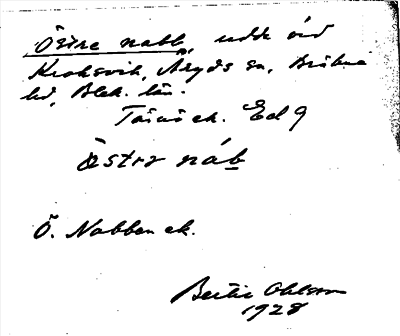 Östre nabb, udde vid
Kroksvik, Åryds sn, Bräkne
hd, Blek. län.
Ed 9
Östrə náb
Ö. Nabben ek.
Bertil Ohlsson
1928